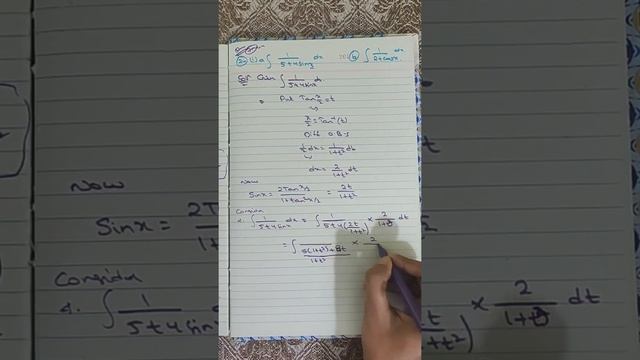 2a (i) a ∫ 1/(5+4sinx) dx (b) ∫ 1/(2+cosx) dx
Sol Given ∫ 1/(5+4sinx) dx
Put Tan x/2 = t
x/2 = Tan⁻¹(t)
Diff O.B.S
1/2 dx = 1/(1+t²) dt
dx = 2/(1+t²) dt
Now
Sinx = 2Tan x/2 / 1+tan² x/2 = 2t/(1+t²)
Consider
∫ 1/(5+4sinx) dx = ∫ 1/(5+4(2t/(1+t²))) × 2/(1+t²) dt
= ∫ 1/((5(1+t²)+8t)/(1+t²)) × 2
Now
Sinx =
Consider
∫ 1/(5+4sin
t/t²) × 2/(1+t²) dt